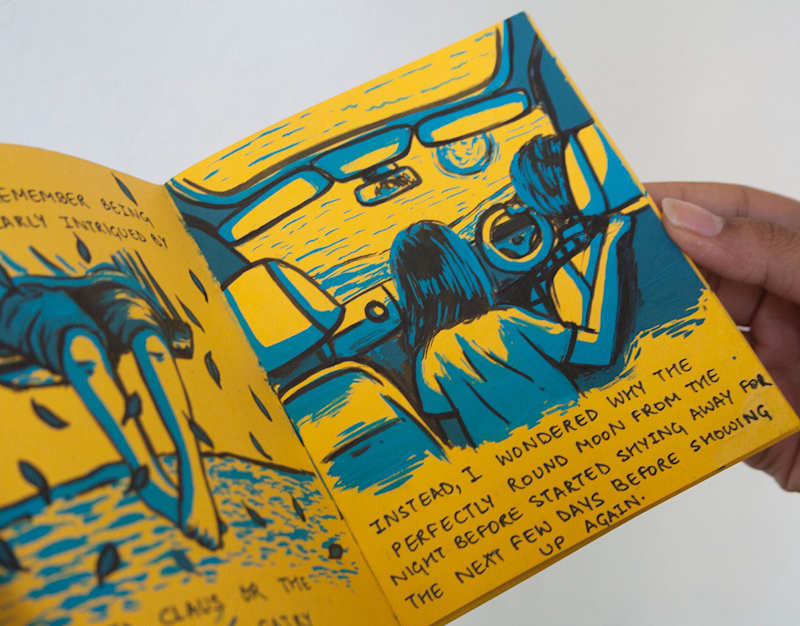 REMEMBER BEING
EARLY INTRIGUED BY
CLAUS OR THE
FAIRY
INSTEAD, I WONDERED WHY THE
PERFECTLY ROUND MOON FROM THE
NIGHT BEFORE STARTED SHYING AWAY FOR
THE NEXT FEW DAYS BEFORE SHOWING
UP AGAIN.